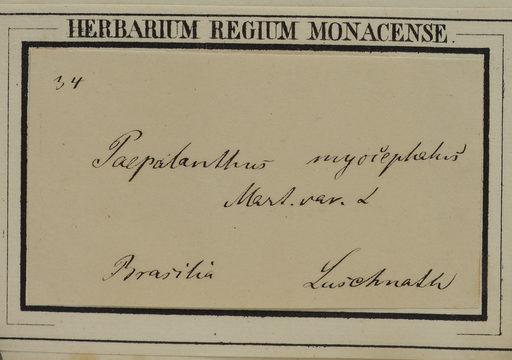 HERBARIUM REGIUM MONACENSE.
34
Paepalanthus myocephalus
Mart. var. α
Brasilia Luschnath